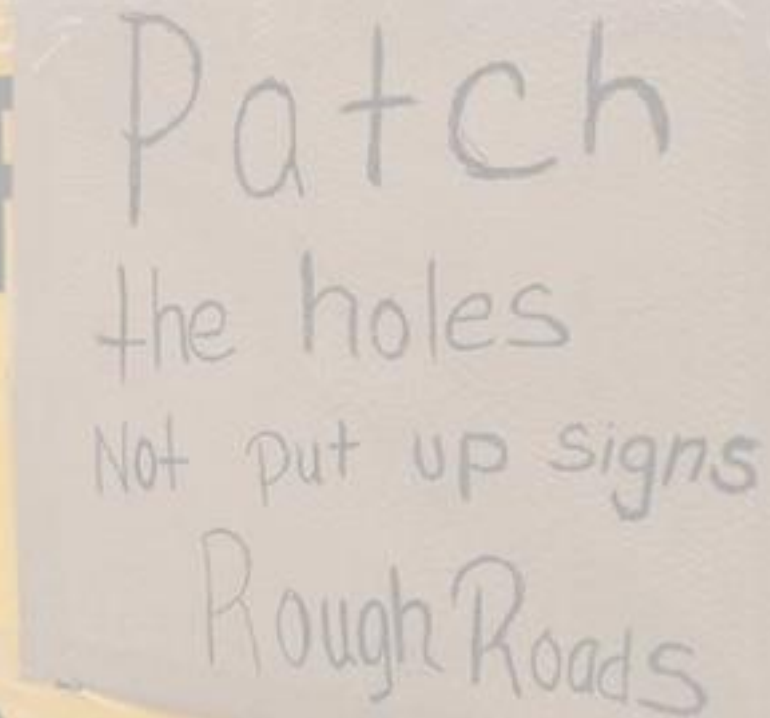 Patch
the holes
Not put up signs
Rough Roads